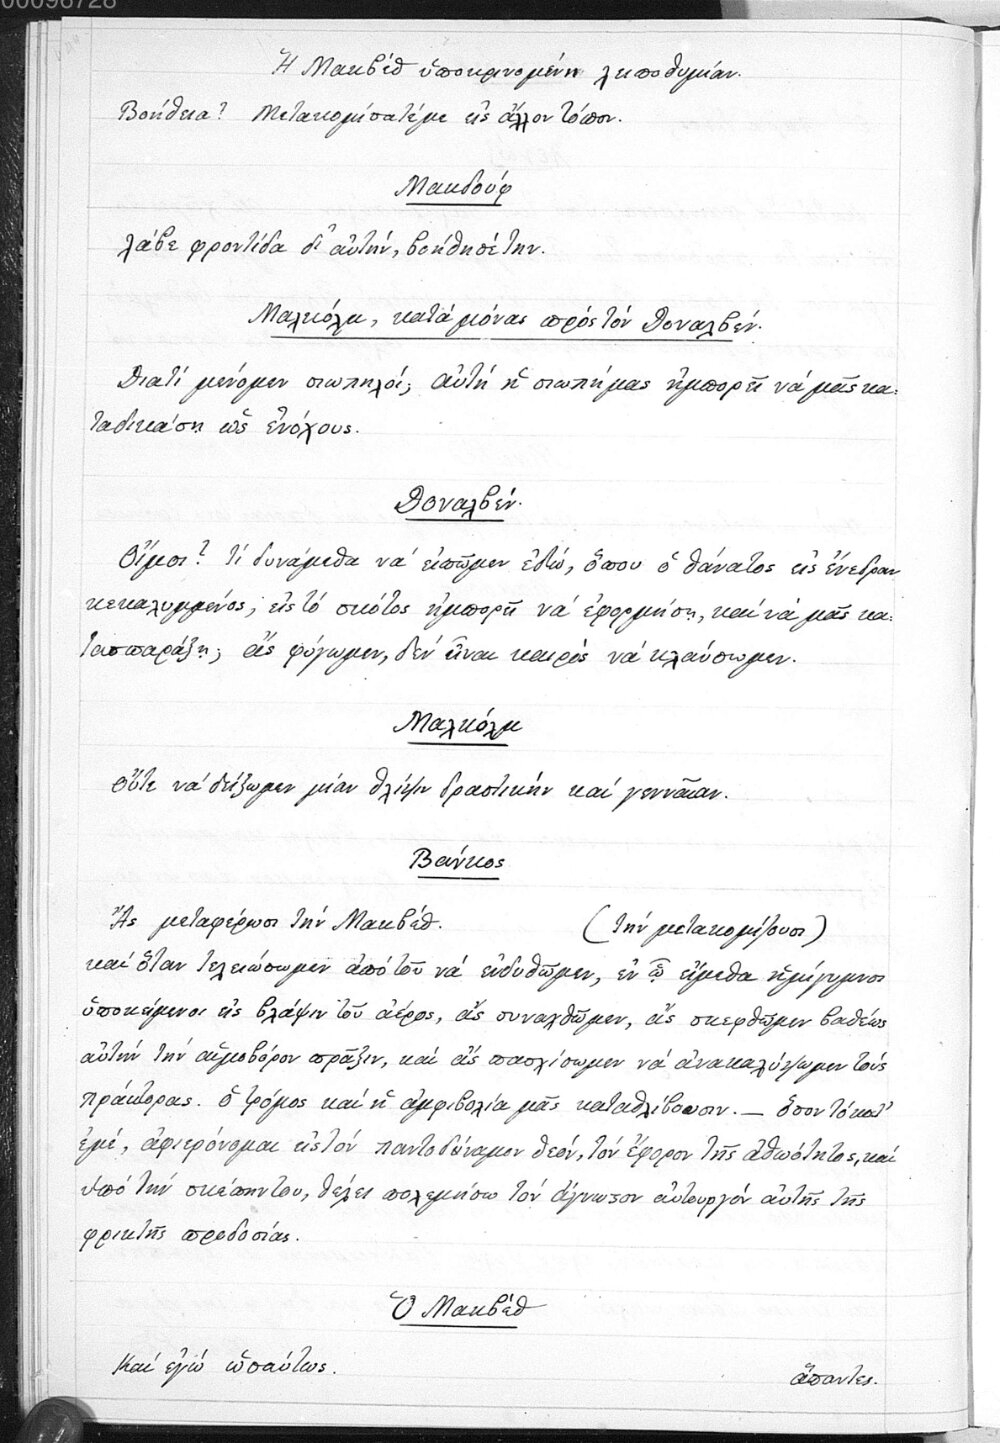 00096728
Ἡ Μακβὲθ ὑποκρινομένη λειποθυμίαν.
Βοήθεια! Μετακομίσατέ με εἰς ἄλλον τόπον.
Μακδούφ
Λάβε φροντίδα δι' αὐτήν, βοήθησέ την.
Μαλκόλμ, κατὰ μόνας πρὸς τὸν Δοναλβέν.
Διατί μένομεν σιωπηλοί; αὐτὴ ἡ σιωπή μας ἠμπορεῖ νὰ μᾶς κα-
ταδικάσῃ ὡς ἐνόχους.
Δοναλβέν.
Οἴμοι! τί δυνάμεθα νὰ εἰπῶμεν ἐδώ, ὅπου ὁ θάνατος εἰς ἔνεδραν
κεκαλυμμένος, εἰς τὸ σκότος ἠμπορεῖ νὰ ἐφορμήσῃ, καὶ νὰ μᾶς κα-
τασπαράξῃ; ἂς φύγωμεν, δὲν εἶναι καιρὸς νὰ κλαύσωμεν.
Μαλκόλμ
Οὔτε νὰ δείξωμεν μίαν θλίψιν δραστικὴν καὶ γενναίαν.
Βάνκος
Ἂς μεταφέρωσι τὴν Μακβέθ. (τὴν μετακομίζουσι)
καὶ ὅταν τελειώσωμεν ἀπὸ τοῦ νὰ ἐνδυθῶμεν, ἐν ᾧ εἴμεθα ἡμίγυμνοι
ὑποκείμενοι εἰς βλάψιν τοῦ ἀέρος, ἂς συναχθῶμεν, ἂς σκεφθῶμεν βαθέως
αὐτὴν τὴν αἱμοβόρον πρᾶξιν, καὶ ἂς πασχίσωμεν νὰ ἀνακαλύψωμεν τοὺς
πράκτορας. ὁ τρόμος καὶ ἡ ἀμφιβολία μᾶς καταθλίβουσιν. — ὅσον τὸ κατ'
ἐμέ, ἀφιερόνομαι εἰς τὸν παντοδύναμον θεόν, τὸν ἔφορον τῆς ἀθωότητος, καὶ
ὑπὸ τὴν σκέπην του, θέλει πολεμήσω τὸν ἄγνωστον αὐτουργὸν αὐτῆς τῆς
φρικτῆς προδοσίας.
Ὁ Μακβέθ
Καὶ ἐγὼ ὡσαύτως.
ἅπαντες.